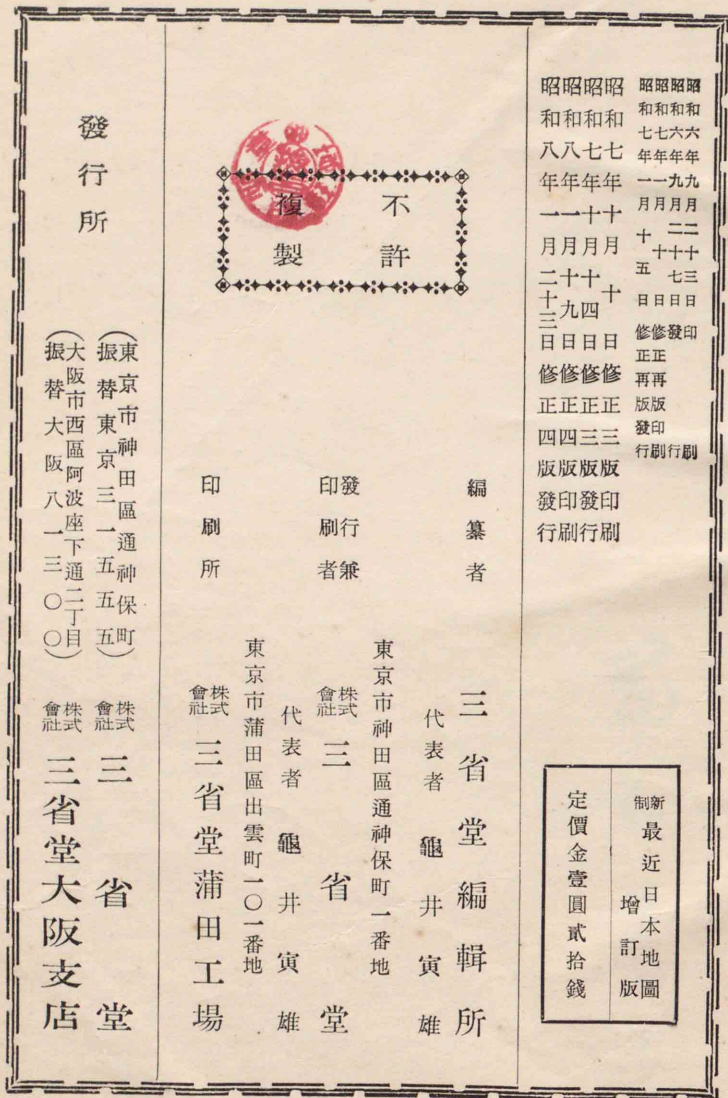 昭和六年九月二十三日印刷
昭和六年九月二十七日發行
昭和七年一月十日修正再版印刷
昭和七年一月十五日修正再版發行
昭和七年十月十日修正三版印刷
昭和七年十月十四日修正三版發行
昭和八年一月十九日修正四版印刷
昭和八年一月二十三日修正四版發行
新制最近日本地圖
增訂版
定價金壹圓貳拾錢
不許
複製
編纂者
三省堂編輯所
代表者龜井寅雄
東京市神田區通神保町一番地
發行兼
印刷者
株式會社三省堂
代表者龜井寅雄
東京市蒲田區出雲町一〇一番地
印刷所
株式會社三省堂蒲田工場
發行所
(東京市神田區通神保町
振替東京三一五五五)
株式會社三省堂
(大阪市西區阿波座下通二丁目
振替大阪八一三〇〇)
株式會社三省堂大阪支店